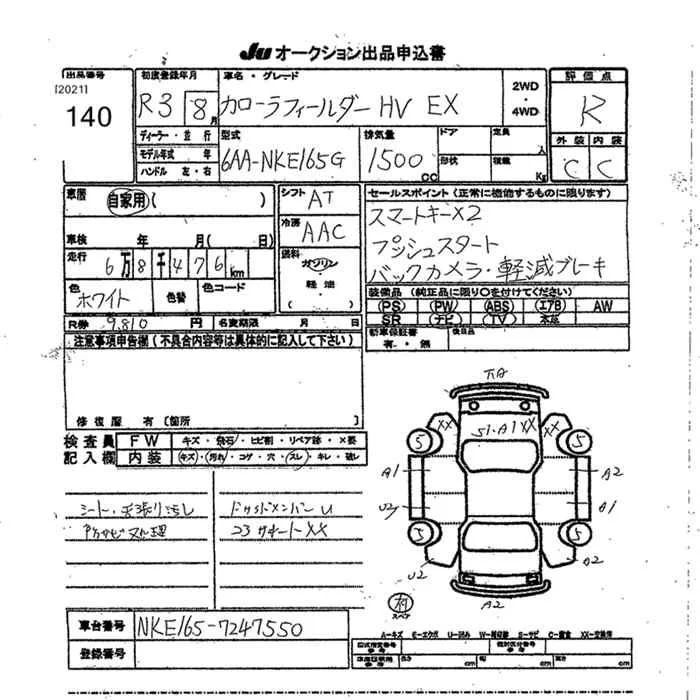 JU オークション出品申込書
出品番号
[2021]
140
初度登録年月
R3 8月
車名・グレード
カローラフィールダー HV EX
2WD
・
4WD
評価点
R
外装 内装
C C
ディーラー・並行
モデル年式 年
ハンドル 左・右
型式
6AA-NKE165G
排気量
1500 CC
ドア
形状
定員 人
積載 Kg
車歴
自家用 ( )
車検 年 月( 日)
走行
6万8千476km
色
ホワイト
色替
色コード
シフト
AT
冷房
AAC
燃料
ガソリン
軽油
セールスポイント (正常に機能するものに限ります)
スマートキー×2
プッシュスタート
バックカメラ・軽減ブレーキ
装備品 (純正品に限り○を付けてください)
PS PW ABS エアB AW
SR ナビ TV 本革
新車保証書
有・無
後日品
R券 9,810 円
名変期限 月 日
注意事項申告欄 (不具合内容等は具体的に記入して下さい)
修復歴 有〔箇所 〕
検査員
記入欄
FW キズ・飛石・ヒビ割・リペア跡・×要
内装 キズ・汚れ・コゲ・穴・スレ・キレ・破レ
シート・天張り汚し
防サビ処理
コアサポートXX
下A
S1・A1 XX
XX
XX
5
5
A1
A2
U2
A1
5
5
U2
A2
A2
スペア
車台番号 NKE165-7247550
登録番号
A-キズ E-エクボ U-凹み W-補修跡 S-サビ C-腐食 XX-交換済
型式指定番号
参考
類別区分番号
参考
車庫証明用
参考
長さ cm
幅 cm
高さ cm